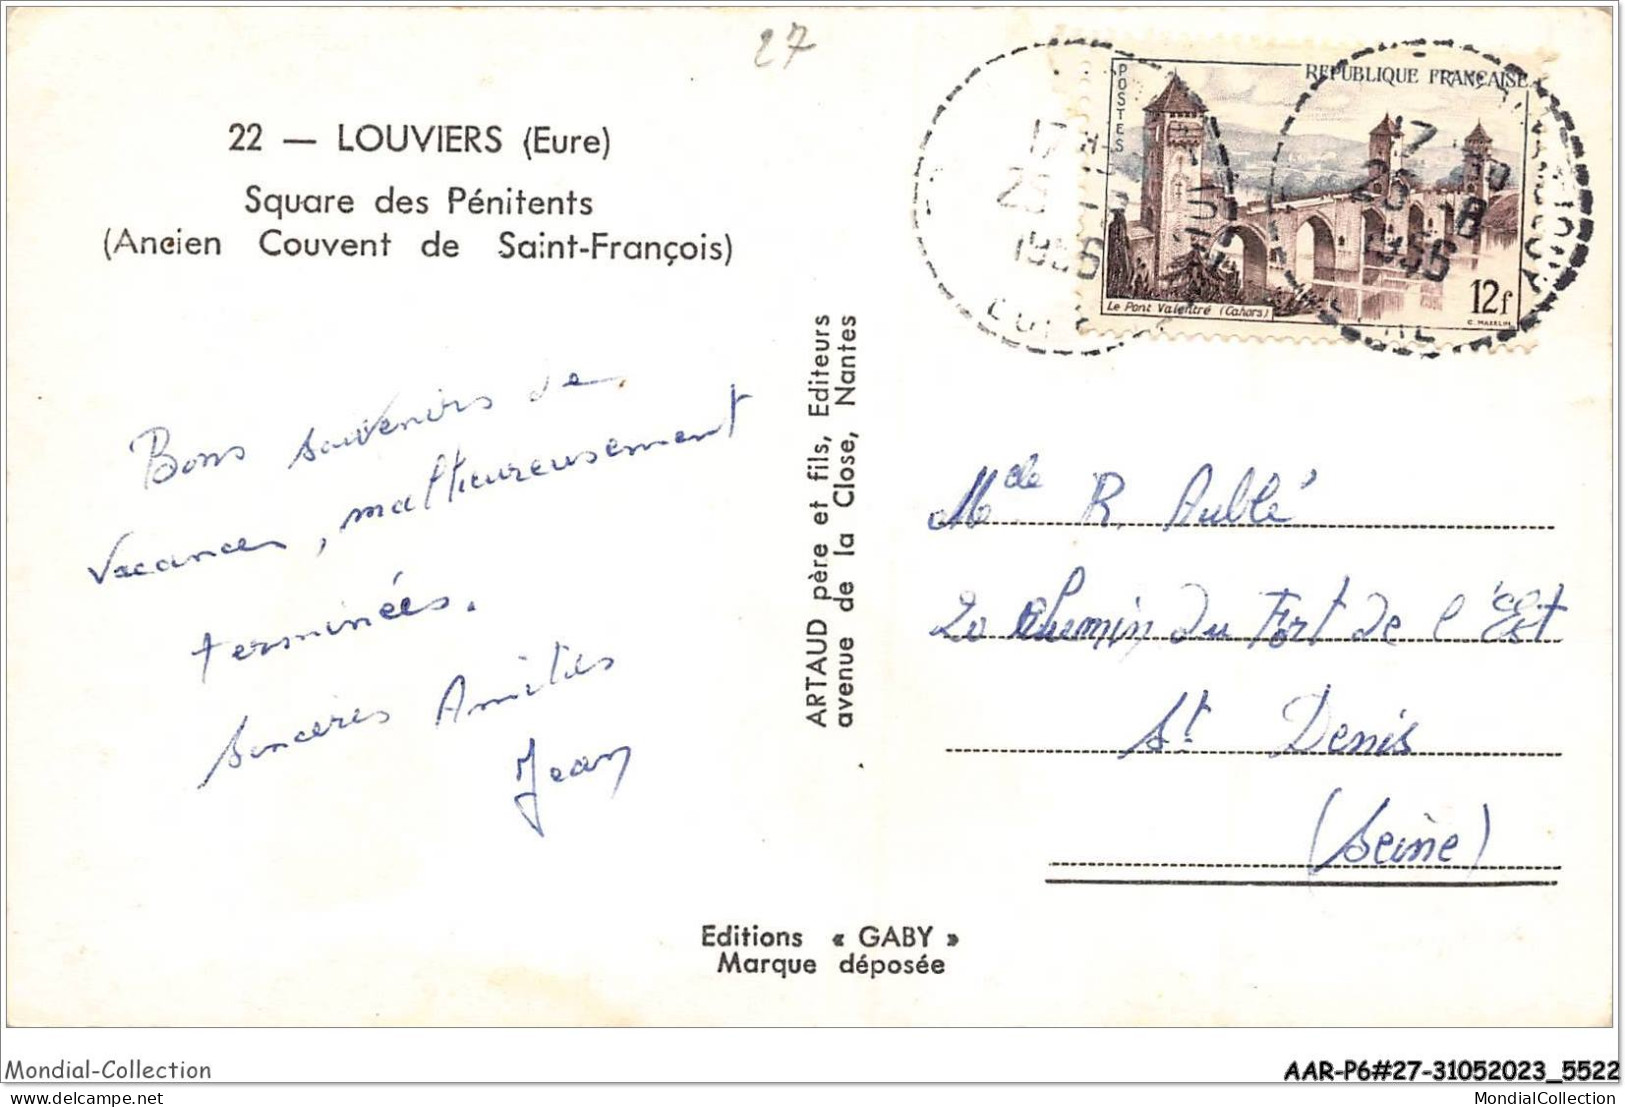 27
22 — LOUVIERS (Eure)
Square des Pénitents
(Ancien Couvent de Saint-François)
Bons souvenirs de
vacances, malheureusement
terminées.
Sincères Amitiés
Jean
ARTAUD père et fils, Editeurs
avenue de la Close, Nantes
POSTES
REPUBLIQUE FRANÇAISE
Le Pont Valentré (Cahors)
12f
17 H
1956
17
1956
EURE
Mde R. Aublé
20 Chemin du Fort de l'Est
St Denis
(Seine)
Editions « GABY »
Marque déposée
Mondial-Collection
AAR-P6#27-31052023_5522
mondial-collection.delcampe.net
MondialCollection